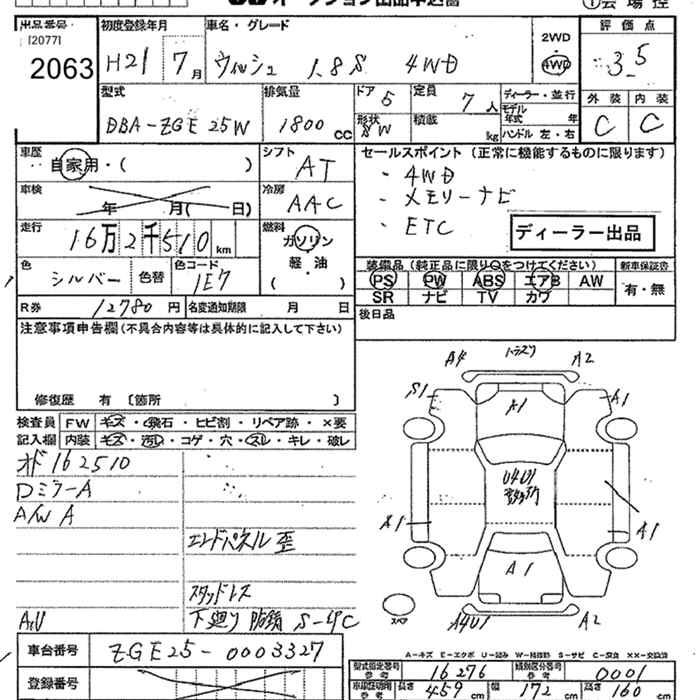 出品番号
[2077]
2063
初度登録年月
H21 7月
車名・グレード
ウィッシュ 1.8S 4WD
2WD
・
4WD
評価点
3.5
外装 内装
C C
型式
DBA-ZGE25W
排気量
1800 cc
ドア 5
形状 8W
定員 7人
積載 kg
ディーラー・並行
モデル年式 年
ハンドル 左・右
車歴
自家用・( )
シフト
AT
車検
年 月( 日)
冷房
AAC
走行
16万2千510 km
燃料
ガソリン
軽・油
( )
色
シルバー
色替
色コード
1E7
セールスポイント (正常に機能するものに限ります)
・4WD
・メモリーナビ
・ETC
ディーラー出品
装備品(純正品に限り○をつけてください)
PS PW ABS エアB AW
SR ナビ TV カワ
新車保証書
有・無
R券 12780円
名変通知期限 月 日
後日品
注意事項申告欄(不具合内容等は具体的に記入して下さい)
修復歴 有 〔箇所 〕
検査員 FW キズ・飛石・ヒビ割・リペア跡・×要
記入欄 内装 キズ・汚れ・コゲ・穴・スレ・キレ・破レ
オド162510
DミラーA
A/W A
エンドパネル歪
スタッドレス
下廻り防錆 S-4PC
A,U
A4 A2
S1 A1 A1
U4U1
A1 A1
A1
スペア
A4U1 A2
車台番号 ZGE25-0003327
登録番号
A=キズ E=エクボ U=凹み W=補修跡 S=サビ C=腐食 XX=交換済
型式指定番号 参考 16276
類別区分番号 参考 0001
車検証明用 参考 長さ 459 cm 幅 172 cm 高さ 160 cm